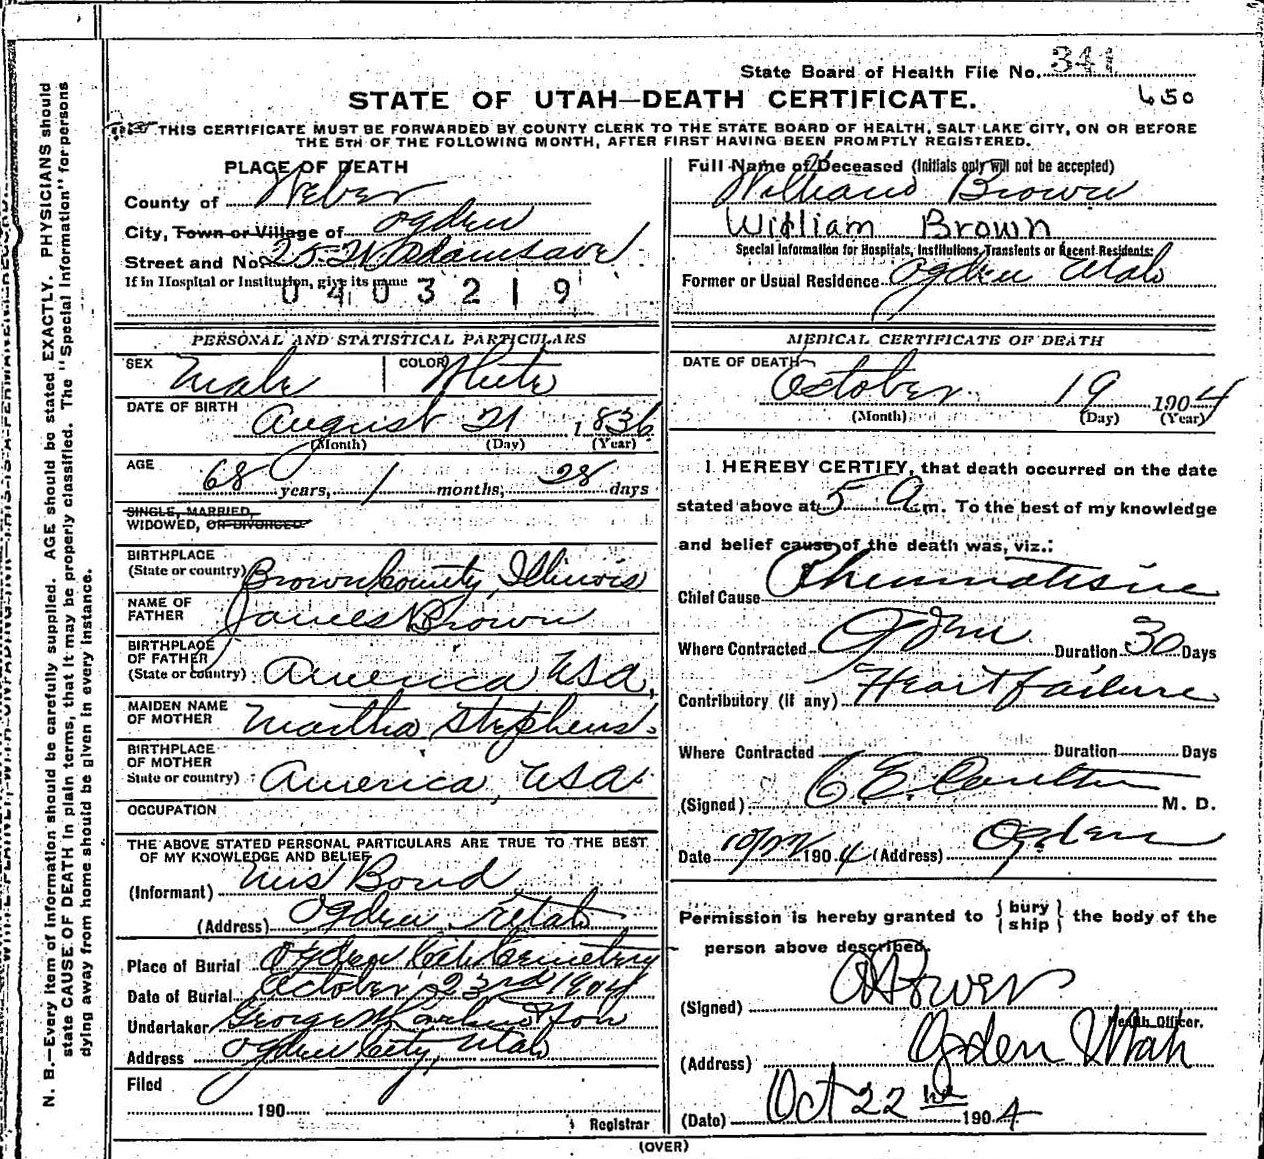 State Board of Health File No. 341
650
STATE OF UTAH—DEATH CERTIFICATE.
THIS CERTIFICATE MUST BE FORWARDED BY COUNTY CLERK TO THE STATE BOARD OF HEALTH, SALT LAKE CITY, ON OR BEFORE
THE 5TH OF THE FOLLOWING MONTH, AFTER FIRST HAVING BEEN PROMPTLY REGISTERED.
PLACE OF DEATH
County of Weber
City, Town or Village of Ogden
Street and No. Adams ave
If in Hospital or Institution, give its name
0403219
PERSONAL AND STATISTICAL PARTICULARS
SEX Male COLOR White
DATE OF BIRTH August 21 1836
(Month) (Day) (Year)
AGE
68 years, 1 months, 28 days
SINGLE, MARRIED,
WIDOWED, OR DIVORCED
BIRTHPLACE
(State or country) Brown County, Illinois
NAME OF
FATHER James Brown
BIRTHPLACE
OF FATHER
(State or country) America USA,
MAIDEN NAME
OF MOTHER Martha Stephens.
BIRTHPLACE
OF MOTHER
State or country) America, USA.
OCCUPATION
THE ABOVE STATED PERSONAL PARTICULARS ARE TRUE TO THE BEST
OF MY KNOWLEDGE AND BELIEF
(Informant) Mrs Bond
(Address) Ogden Utah
Place of Burial Ogden City Cemetery
Date of Burial October 23rd 1904
Undertaker George Larkin & Son
Address Ogden City, Utah
Filed
190
Registrar
Full Name of Deceased (Initials only will not be accepted)
William Brown
William Brown
Special Information for Hospitals, Institutions, Transients or Recent Residents:
Former or Usual Residence Ogden Utah
MEDICAL CERTIFICATE OF DEATH
DATE OF DEATH
October 19 1904
(Month) (Day) (Year)
I HEREBY CERTIFY, that death occurred on the date
stated above at 5 A m. To the best of my knowledge
and belief cause of the death was, viz.:
Chief Cause Rheumatism
Where Contracted Ogden Duration 30 Days
Contributory (if any) Heart failure
Where Contracted Duration Days
(Signed) E. Coulter M. D.
Date 1904 (Address) Ogden
Permission is hereby granted to { bury ship } the body of the
person above described.
(Signed)
Health Officer.
(Address) Ogden Utah
(Date) Oct 22 1904
(OVER)
N. B.—Every item of information should be carefully supplied. AGE should be stated EXACTLY. PHYSICIANS should
state CAUSE OF DEATH in plain terms, that it may be properly classified. The "Special Information" for persons
dying away from home should be given in every instance.